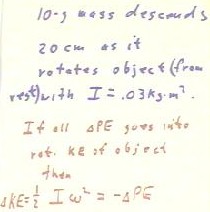 10-g mass descends
20 cm as it
rotates object (from
rest) with I = .03 kg·m².
If all ΔPE goes into
rot. KE of object
then
ΔKE = ½ I ω² = -ΔPE